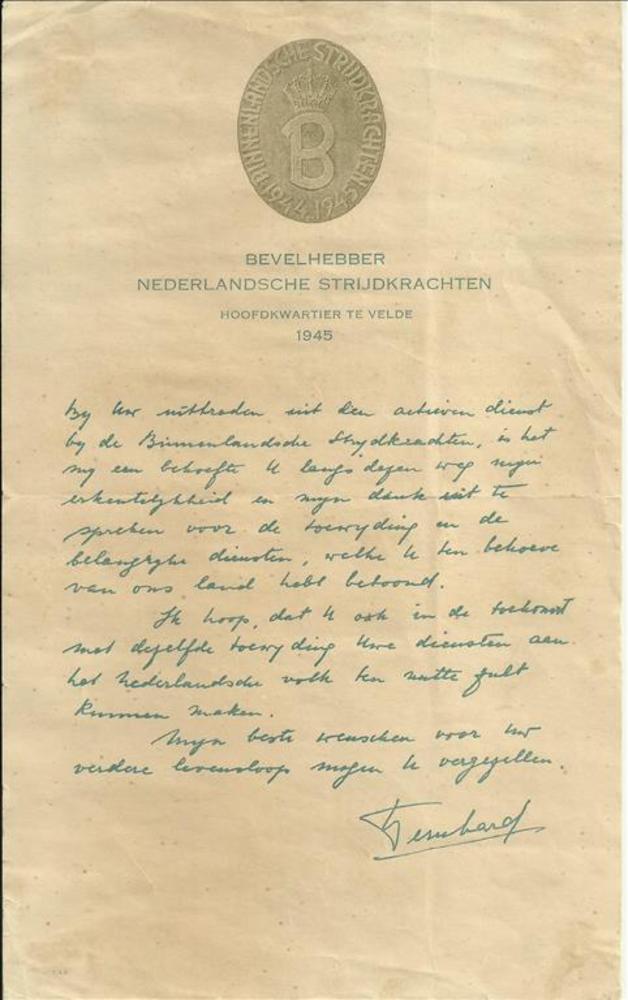 BINNENLANDSCHE STRIJDKRACHTEN
B
1944-1945
BEVELHEBBER
NEDERLANDSCHE STRIJDKRACHTEN
HOOFDKWARTIER TE VELDE
1945
By Uw uittreden uit den actieven dienst
by de Binnenlandsche Strydkrachten, is het
my een behoefte U langs dezen weg myn
erkentelykheid en myn dank uit te
spreken voor de toewyding en de
belangryke diensten, welke U ten behoeve
van ons land hebt betoond.
Ik hoop, dat U ook in de toekomst
met dezelfde toewyding Uwe diensten aan
het Nederlandsche volk ten nutte zult
kunnen maken.
Myn beste wenschen voor Uw
verdere levensloop mogen U vergezellen.
Bernhard